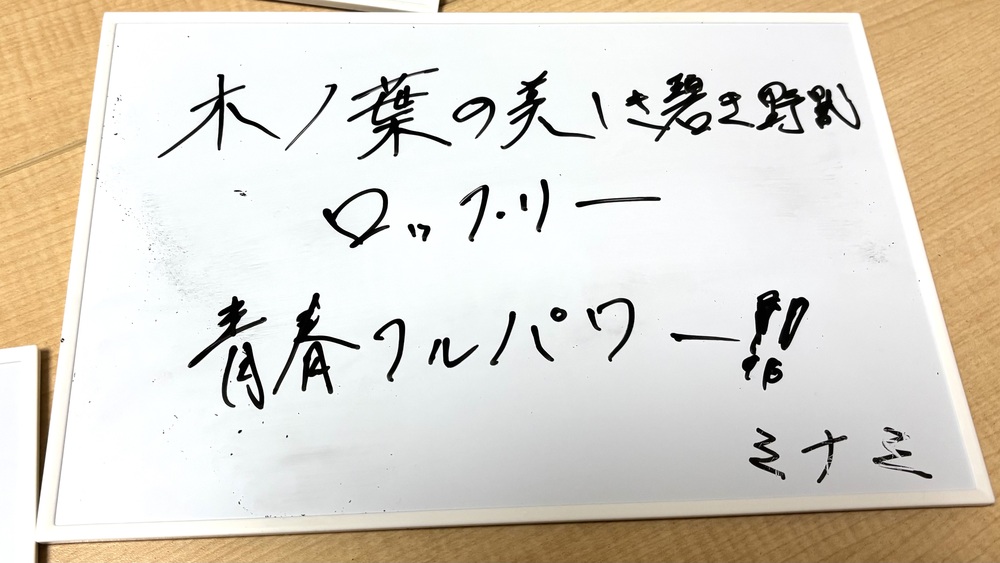 木ノ葉の美しき碧き野郎
ロックリー
青春フルパワー!!
ミナミ